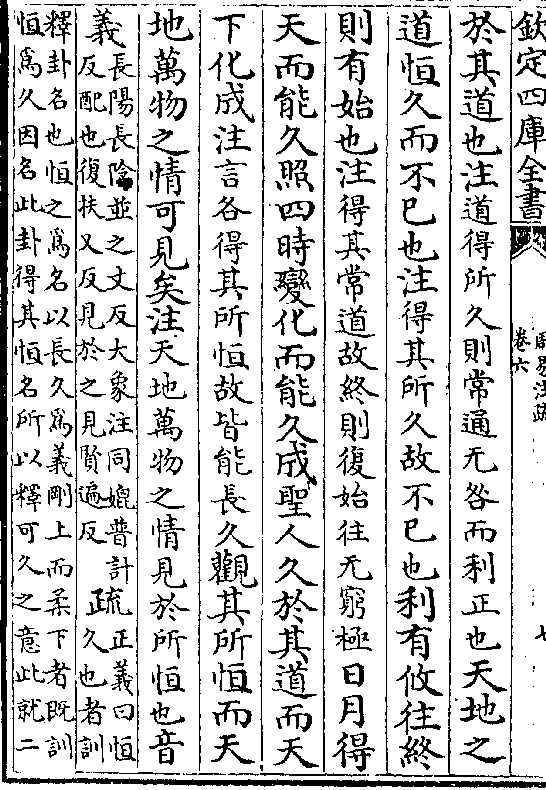 欽定四庫全書
周易注疏
卷六
七
於其道也注道得所久則常通无咎而利正也天地之
道恒久而不已也注得其所久故不已也利有攸往終
則有始也注得其常道故終則復始往无窮極日月得
天而能久照四時變化而能久成聖人久於其道而天
下化成注言各得其所恒故皆能長久觀其所恒而天
地萬物之情可見矣注天地萬物之情見於所恒也音
義
長陽長陰並之丈反大象注同媲普計
反配也復扶又反見於之見賢遍反
疏
正義曰恒
久也者訓
釋卦名也恒之爲名以長久爲義剛上而柔下者既訓
恒爲久因名此卦得其恒名所以釋可久之意此就二